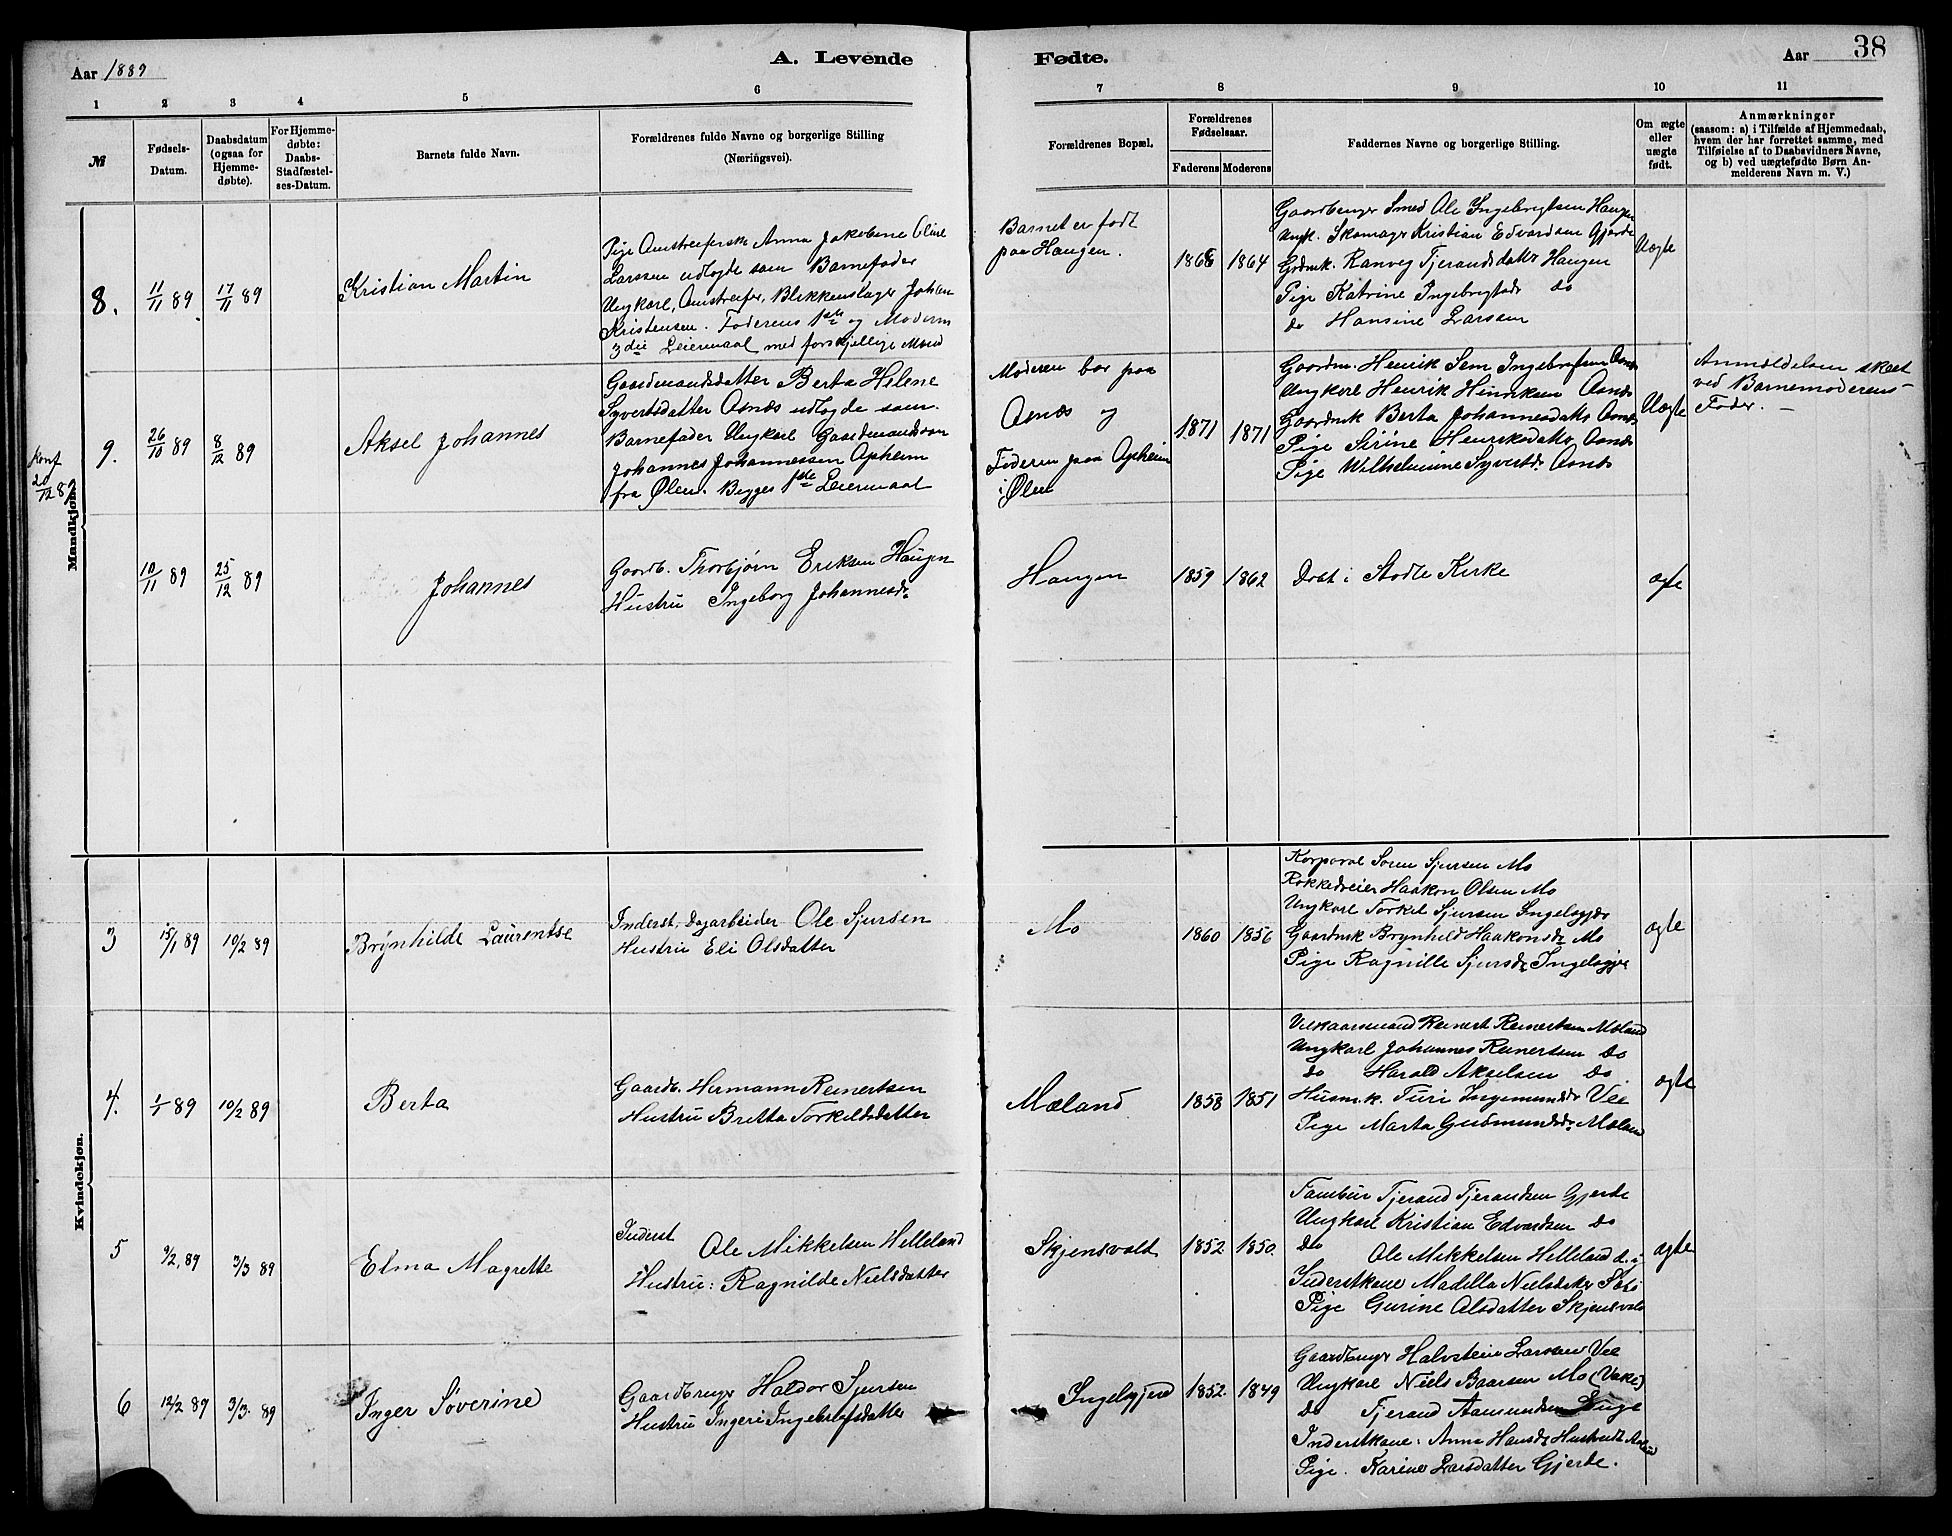 Aar 1889
A. Levende
Fødte.
Aar
38
1 2 3 4 5 6 7 8 9 10 11
№
Fødsels-
Datum.
Daabsdatum
(ogsaa for
Hjemme-
døbte).
For Hjemme-
døbte:
Daabs-
Stadfæstel-
ses-Datum.
Barnets fulde Navn.
Forældrenes fulde Navne og borgerlige Stilling
(Næringsvei).
Forældrenes Bopæl.
Forældrenes
Fødselsaar.
Faderens Moderens
Faddernes Navne og borgerlige Stilling.
Om ægte
eller
uægte
født.
Anmærkninger
(saasom: a) i Tilfælde af Hjemmedaab,
hvem der har forrettet samme, med
Tilføielse af to Daabsvidners Navne,
og b) ved uægtefødte Børn An-
melderens Navn m. V.)
Mandkjøn.
8.
11/11 89
17/11 89
Kristian Martin
Pige Omstreiferske Anna Jakobine Oline
Larssen udlagde som Barnefader
Ungkarl, Omstreifer, Blikkenslager Johan
Kristensen. Faderens 1ste og Moderens
3die Leiermaal med forskjellige Mænd
Barnet er født
paa Haugen.
1866
1864
Gaardbruger Smed Ole Ingebrigtsen Haugen
Ungk. Skomager Kristian Edvardsen Gjerde
Grdmk. Ranveg Tjerandsdatter Haugen
Pige Katrine Ingebrigtsdr do
do Hansine Larssen
Uægte
Konf
20/12 89
9.
26/10 89
8/12 89
Aksel Johannes
Gaardmandsdatter Berta Helene
Syvertsdatter Osnæs udlagde som
Barnefader Ungkarl Gaardmandssøn
Johannes Johannessen Opheim
fra Ølen. Begges 1ste Leiermaal
Moderen bor paa
Osnæs og
Faderen paa Opheim
i Ølen
1871
1871
Gaardm. Henrik Sem Ingebretsen Osnæs
Ungkarl Henrik Henriksen Osnæs
Gaardmk Berta Johannesdatter Osnæs
Pige Sirine Henriksdatter Osnæs
Pige Wilhelmine Syvertsd. Osnæs
Uægte
Anmeldelsen skeet
ved Barnemoderens
Fader. —
10/11 89
25/12 89
Johannes
Gaardb. Thorbjørn Eriksen Haugen
Hustru Ingeborg Johannesdr.
Haugen
1859
1862
Døbt i Stodle Kirke
ægte
Kvindekjøn.
3
15/1 89
10/2 89
Brynhilde Laurentse
Inderst, Dagarbeider Ole Sjursen
Hustru Eli Olsdatter
Mo
1860
1856
Korporal Soren Sjursen Mo
Rokkedreier Haakon Olsen Mo
Ungkarl Torkel Sjursen Ingelsgjer
Gaardmk Brynhild Haakonsdr Mo
Pige Ragnille Sjursdr Ingelsgjer
ægte
4.
1/1 89
10/2 89
Berta
Gaardb. Hermann Reinertsen
Hustru Britta Torkildsdatter
Mæland
1858
1851
Vilkaarsmand Reinert Reinertsen Mæland
Ungkarl Johannes Reinertsen do
do Harald Akselsen do
Husm.k. Turi Ingemundsdr Vee
Pige Marta Gudmundsdr. Mæland
ægte
5
9/2 89
3/3 89
Elma Magrette
Inderst
Ole Mikkelsen Helleland
Hustru: Ragnilde Nielsdatter
Skjensvold
1852
1850
Tambur Tjerand Tjerandsen Gjerde
Ungkarl Kristian Edvardsen do
do Ole Mikkelsen Helleland
Inderstkone Madella Nielsdatter
Pige Gurine Olsdatter Skjensvold
ægte
6
12/2 89
3/3 89
Inger Søverine
Gaardbruger Haldor Sjursen
Hustru Ingeri Ingebrigtsdatter
Ingelsgjerd
1852
1849
Gaardbruger Halvstein Larssen Vee
Ungkarl Niels Baarsen Mo (Vake)
do Tjerand Aamundsen
Inderstkone: Anna Hansdr
Pige. Karine Larsdatter Gjerde.